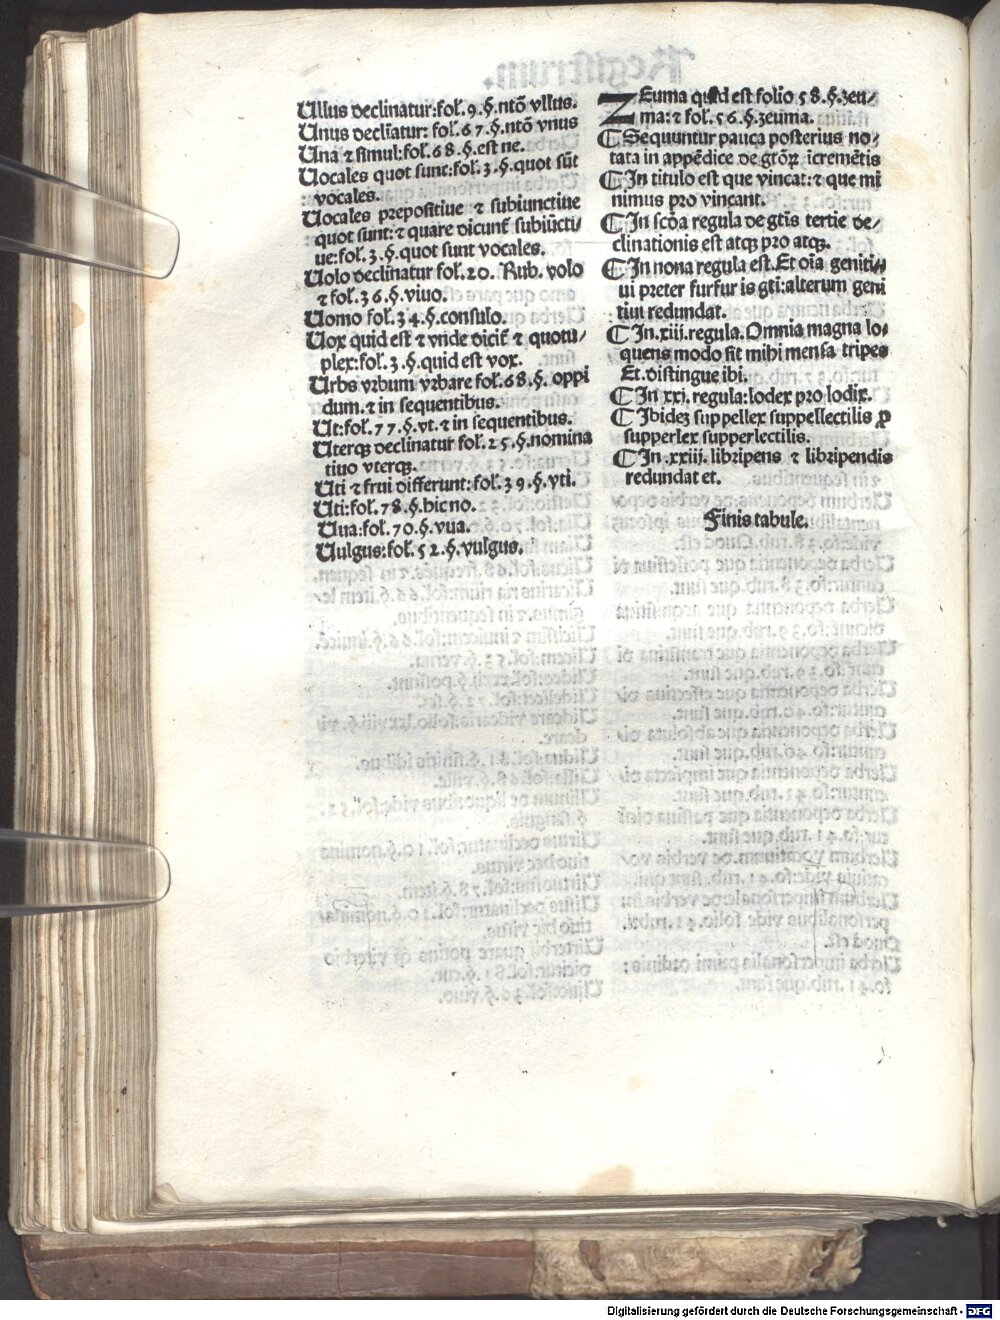 Ullus declinatur:fol. 9.§.ntō vllus.
Unus decliatur: fol. 67.§.ntō vnus
Una ⁊ simul:fol. 68.§.est ne.
Uocales quot sunt:fol. 3.§.quot sūt
vocales.
Uocales prepositiue ⁊ subiunctiue
quot sunt:⁊ quare dicunt̄ subiūcti/
ue:fol. 3.§.quot sunt vocales.
Uolo declinatur fol. 20. Rub. volo
⁊ fol. 36.§.viuo.
Uomo fol. 34.§.consulo.
Uox quid est ⁊ vnde dicit̄ ⁊ quotu/
plex:fol. 3.§.quid est vox.
Urbs vrbum vrbare fol. 68.§. oppi
dum.⁊ in sequentibus.
Ut:fol. 77.§.vt.⁊ in sequentibus.
Uterqꝫ declinatur fol. 25.§.nomina
tiuo vterqꝫ.
Uti ⁊ frui differunt:fol. 39.§.vti.
Uti:fol. 78.§.hic no.
Uua:fol. 70.§.vua.
Uulgus:fol. 52.§.vulgus.
ZEuma quid est folio 58.§.zeu/
ma:⁊ fol. 56.§.zeuma.
¶ Sequuntur pauca posterius no/
tata in appēdice de gtōꝝ icremētis
¶ In titulo est que vincat:⁊ que mi
nimus pro vincant.
¶ In scōa regula de gtīs tertie de/
clinationis est atqꝫ pro atqꝫ.
¶ In nona regula est. Et oīa geniti/
ui preter furfur is gti:alterum geni
tiui redundat.
¶ In.xiii.regula. Omnia magna lo/
quens modo sit mihi mensa tripes
Et.distingue ibi.
¶ In xxi.regula:lodex pro lodix.
¶ Ibidez suppellex suppellectilis ꝓ
supperlex supperlectilis.
¶ In.xxiii. libripens ⁊ libripendis
redundat et.
Finis tabule.
Digitalisierung gefördert durch die Deutsche Forschungsgemeinschaft - DFG